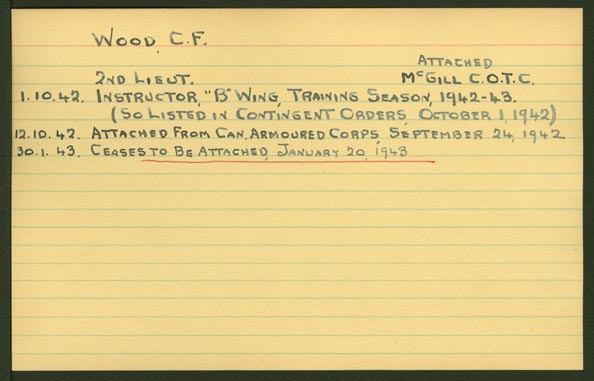 WOOD, C.F.
ATTACHED
2ND LIEUT. McGILL C.O.T.C.
1.10.42. INSTRUCTOR, "B" WING, TRAINING SEASON, 1942-43.
(SO LISTED IN CONTINGENT ORDERS, OCTOBER 1, 1942)
12.10.42. ATTACHED FROM CAN. ARMOURED CORPS, SEPTEMBER 24, 1942
30.1.43. CEASES TO BE ATTACHED, JANUARY 20, 1943